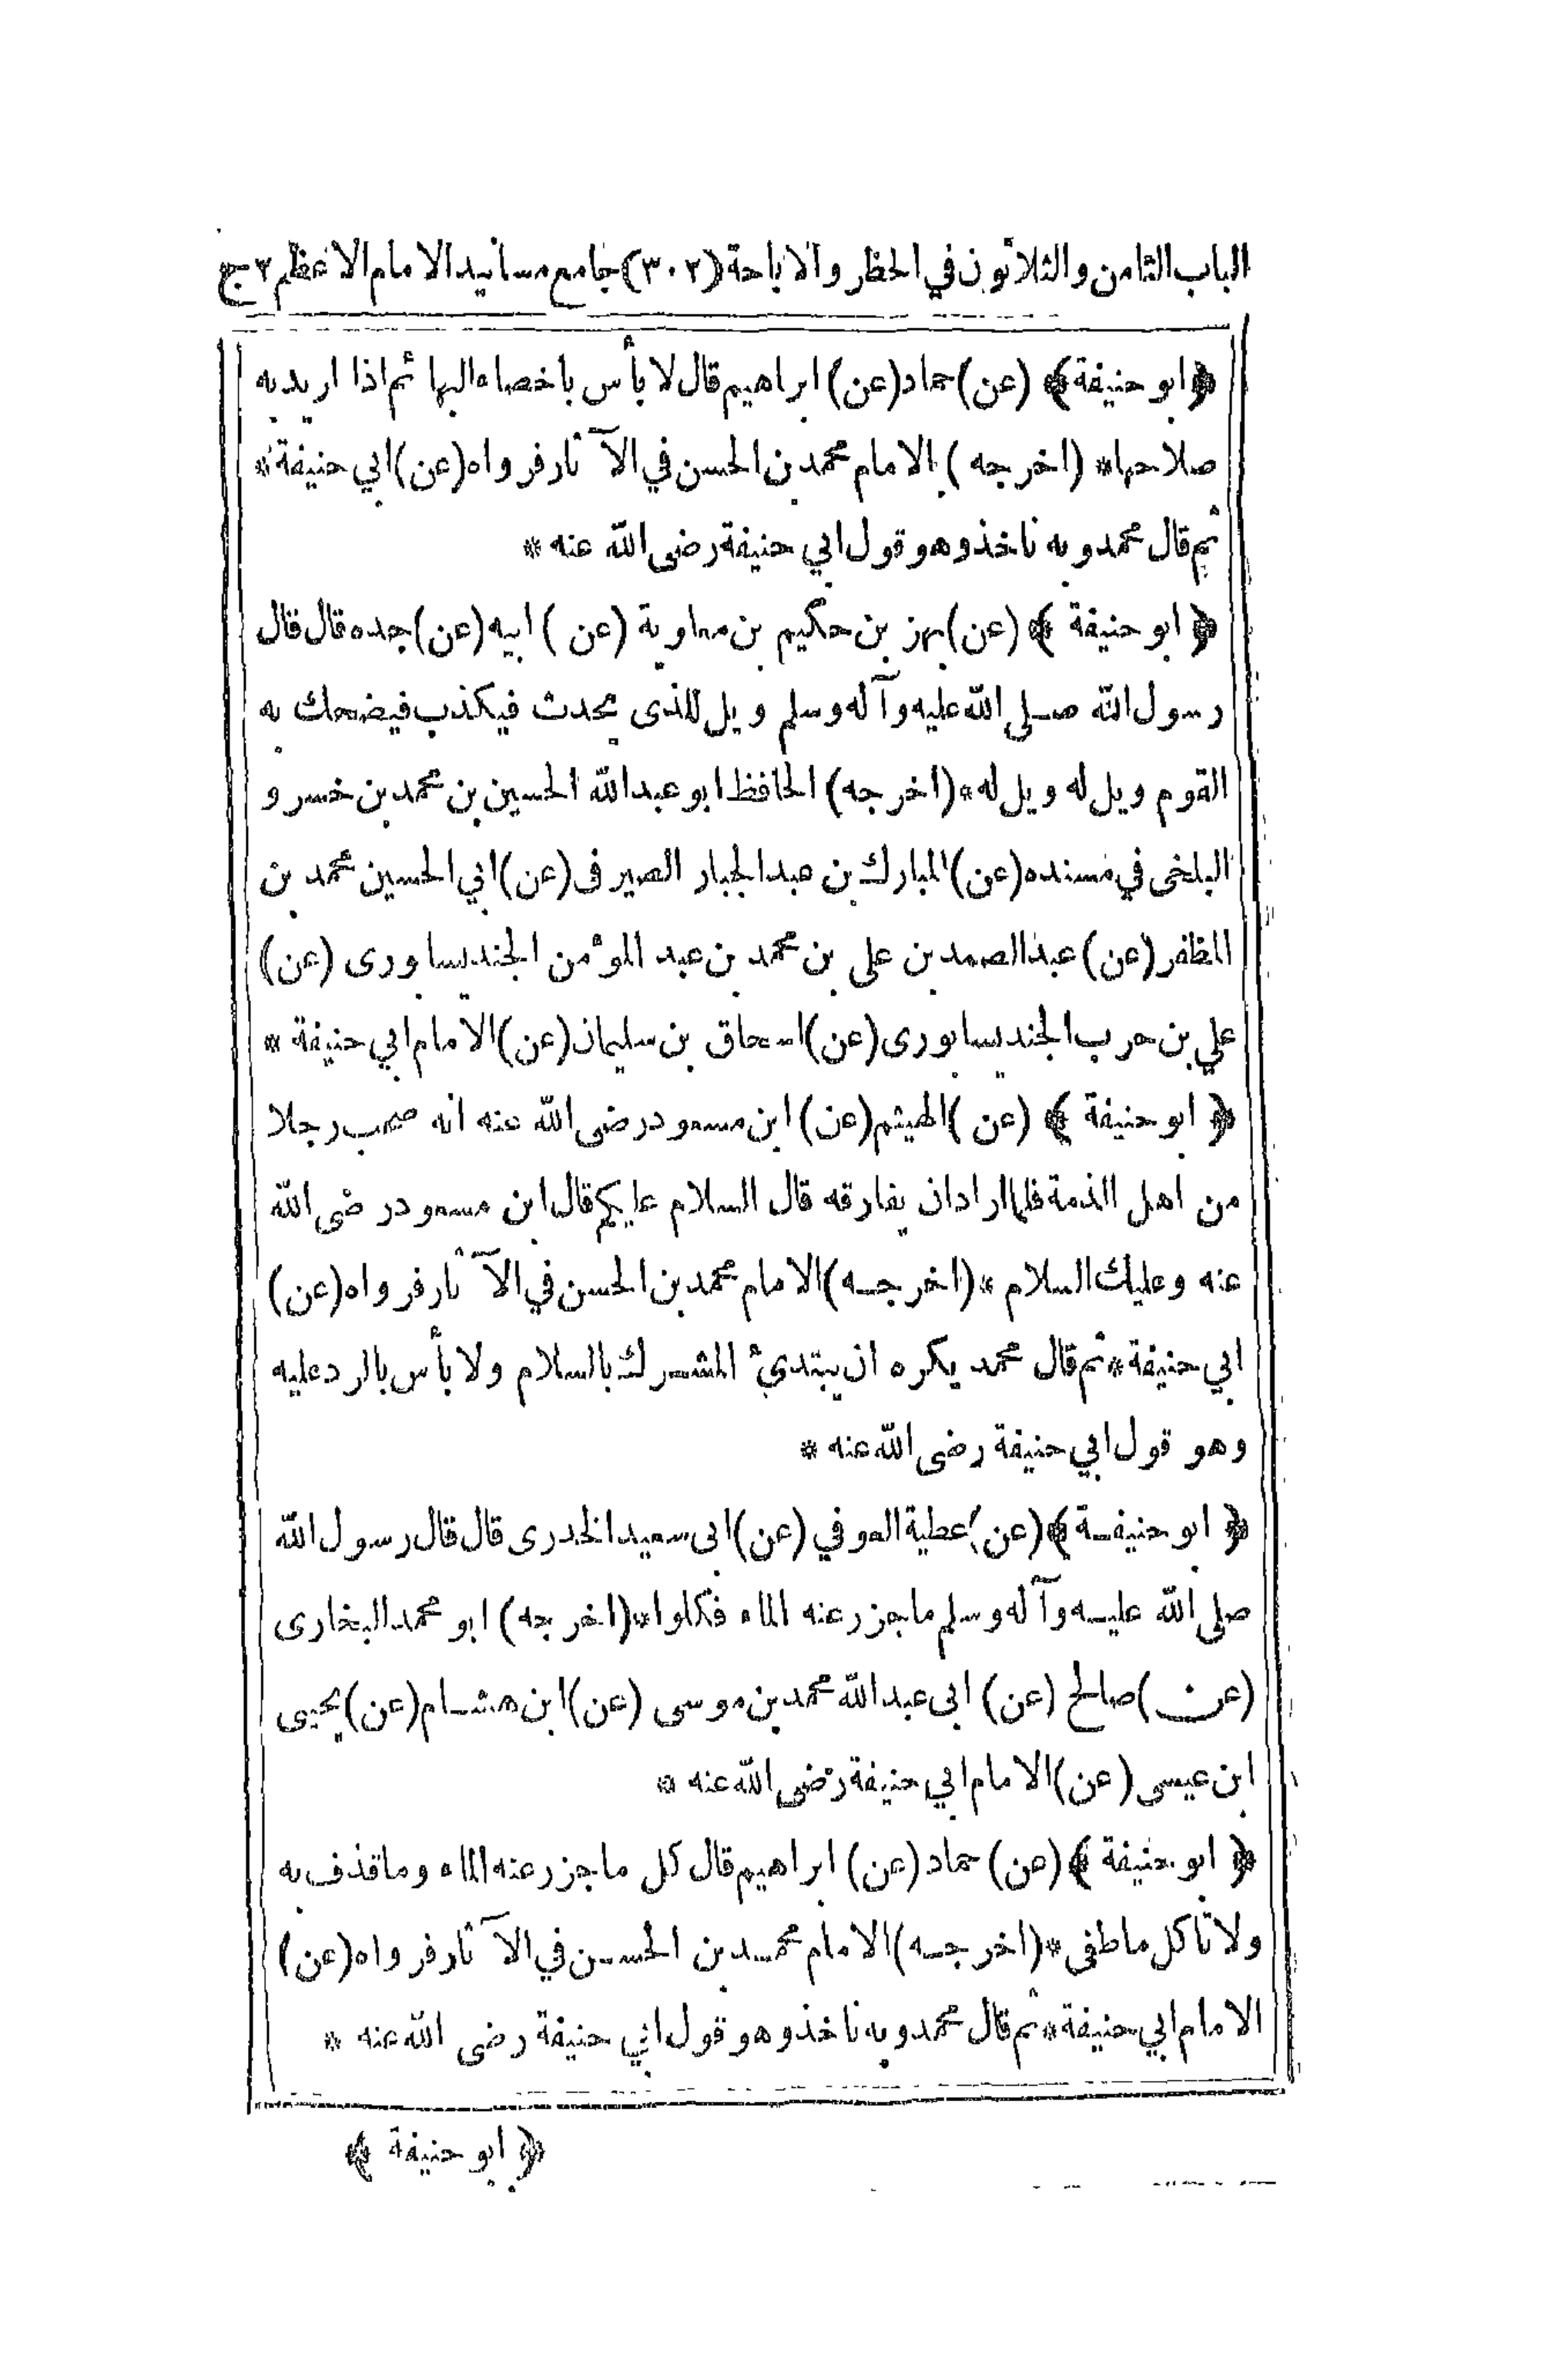 الباب الثامن والثلاثون في الحظر والاباحة (٣٠٢) جامع مسانيد الامام الاعظم ٢ ج
﴿ابو حنيفة﴾ (عن) حماد (عن) ابراهيم قال لا بأس باخصاء البهائم اذا اريد به
صلاحها* (اخرجه) الامام محمد بن الحسن في الآثار فرواه (عن) ابي حنيفة*
ثم قال محمد وبه ناخذ وهو قول ابي حنيفة رضى الله عنه *
﴿ ابو حنيفة ﴾ (عن) بهز بن حكيم بن معاوية (عن) ابيه (عن) جده قال قال
رسول الله صلى الله عليه وآله وسلم ويل للذى يحدث فيكذب فيضحك به
القوم ويل له ويل له* (اخرجه) الحافظ ابو عبد الله الحسين بن محمد بن خسرو
البلخى في مسنده (عن) المبارك بن عبد الجبار الصيرفى (عن) ابي الحسين محمد بن
المظفر (عن) عبد الصمد بن على بن محمد بن عبد المؤمن الجنديسابورى (عن)
علي بن حرب الجنديسابورى (عن) اسحاق بن سليمان (عن) الامام ابي حنيفة *
﴿ ابو حنيفة ﴾ (عن) الهيثم (عن) ابن مسعود رضى الله عنه انه صحب رجلا
من اهل الذمة فلما اراد ان يفارقه قال السلام عليكم قال ابن مسعود رضى الله
عنه وعليك السلام * (اخرجه) الامام محمد بن الحسن في الآثار فرواه (عن)
ابي حنيفة* ثم قال محمد يكره ان يبتدئ المشرك بالسلام ولا بأس بالرد عليه
وهو قول ابي حنيفة رضى الله عنه *
﴿ ابو حنيفة ﴾ (عن) عطية العوفي (عن) ابى سعيد الخدرى قال قال رسول الله
صلى الله عليه وآله وسلم ما جزر عنه الماء فكلوا* (اخرجه) ابو محمد البخارى
(عن) صالح (عن) ابى عبد الله محمد بن موسى (عن) ابن هشام (عن) يحيى
ابن عيسى (عن) الامام ابي حنيفة رضى الله عنه *
﴿ ابو حنيفة ﴾ (عن) حماد (عن) ابراهيم قال كل ما جزر عنه الماء وما قذف به
ولا تاكل ما طفى* (اخرجه) الامام محمد بن الحسن في الآثار فرواه (عن)
الامام ابي حنيفة* ثم قال محمد وبه ناخذ وهو قول ابي حنيفة رضى الله عنه *
﴿ ابو حنيفة ﴾